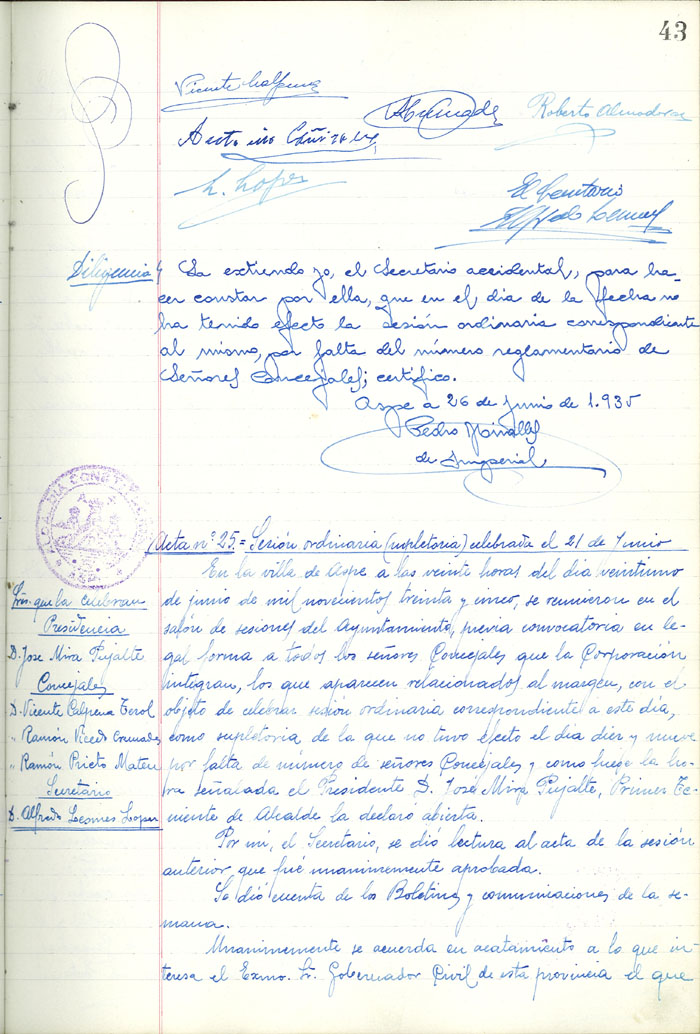 43
Vicente Calpena
Roberto Almodovar
Antonio Cañizares
L. Lopez
El Secretario
Alfredo Lesmes
Diligencia La extiendo yo, el Secretario accidental, para ha-
cer constar por ella, que en el dia de la fecha no
ha tenido efecto la sesión ordinaria correspondiente
al mismo, por falta del número reglamentario de
Señores Concejales; certifico.
Aspe a 26 de Junio de 1.935
Pedro
de Imperial
Acta nº 25.= Sesión ordinaria (supletoria) celebrada el 21 de Junio
Srs. que la celebran
Presidencia
D. Jose Mira Pujalte
Concejales
D. Vicente Calpena Terol
" Ramón Vicedo
" Ramón Prieto Mateu
Secretario
D. Alfredo Lesmes Lopez
En la villa de Aspe a las veinte horas del dia veintiuno
de junio de mil novecientos treinta y cinco, se reunieron en el
salón de sesiones del Ayuntamiento, previa convocatoria en le-
gal forma a todos los señores Concejales que la Corporación
integran, los que aparecen relacionados al margen, con el
objeto de celebrar sesión ordinaria correspondiente a este dia,
como supletoria de la que no tuvo efecto el dia diez y nueve
por falta de número de señores Concejales y como luego la ho-
ra señalada el Presidente D. José Mira Pujalte, Primer Te-
niente de Alcalde la declaró abierta.
Por mi, el Secretario, se dió lectura al acta de la sesión
anterior que fué unanimemente aprobada.
Se dió cuenta de los Boletines y comunicaciones de la se-
mana.
Unanimemente se acuerda en acatamiento a lo que in-
teresa el Exmo. Sr. Gobernador Civil de esta provincia el que